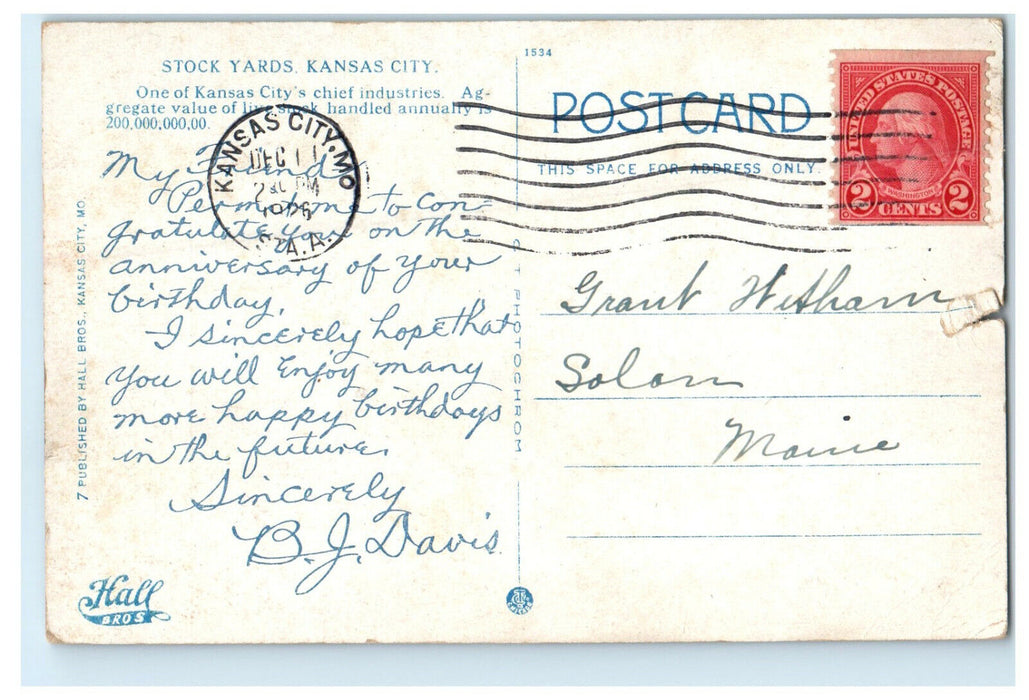 STOCK YARDS, KANSAS CITY.
One of Kansas City's chief industries. Ag-
gregate value of live stock handled annually is
200,000,000,00.
My Friend
Permit me to con-
gratulate you on the
anniversary of your
birthday.
I sincerely hope that
you will enjoy many
more happy birthdays
in the future.
Sincerely
B. J. Davis
7 PUBLISHED BY HALL BROS., KANSAS CITY, MO.
Hall
BROS
KANSAS CITY, MO
DEC 11
PM
1926
S.A.A.
PHOTOCHROM
1534
POST CARD
THIS SPACE FOR ADDRESS ONLY.
UNITED STATES POSTAGE
WASHINGTON
2 CENTS 2
Grant Witham
Solon
Maine